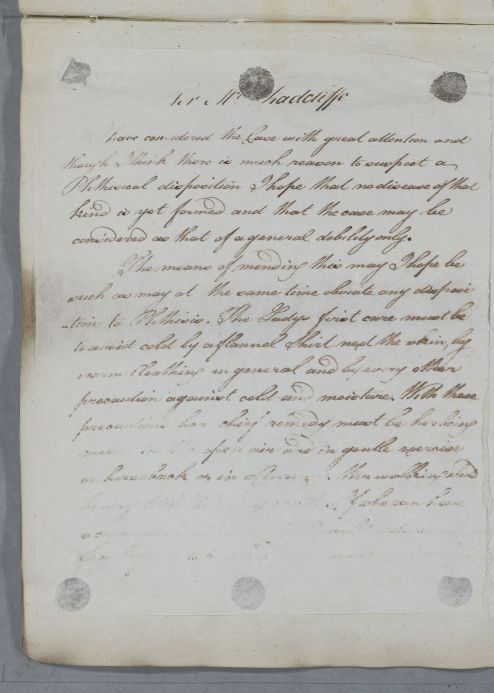 for Mrs Radcliffe
have considered the Case with great attention and
though I think there is much reason to suspect a
Phthisical disposition I hope that no disease of that
kind is yet formed and that the case may be
considered as that of a general debility only.
The means of mending this may I hope be
such as may at the same time obviate any disposi
-tion to Phthisis. The Ladys first care must be
to avoid cold by a flannel Shirt next the skin, by
warm Cloathing in general and by every other
precaution against cold and moisture. With these
precautions her chief remedy must be her being
much in the open air and in gentle exercise
on horseback or in a . Her walking
If she can have